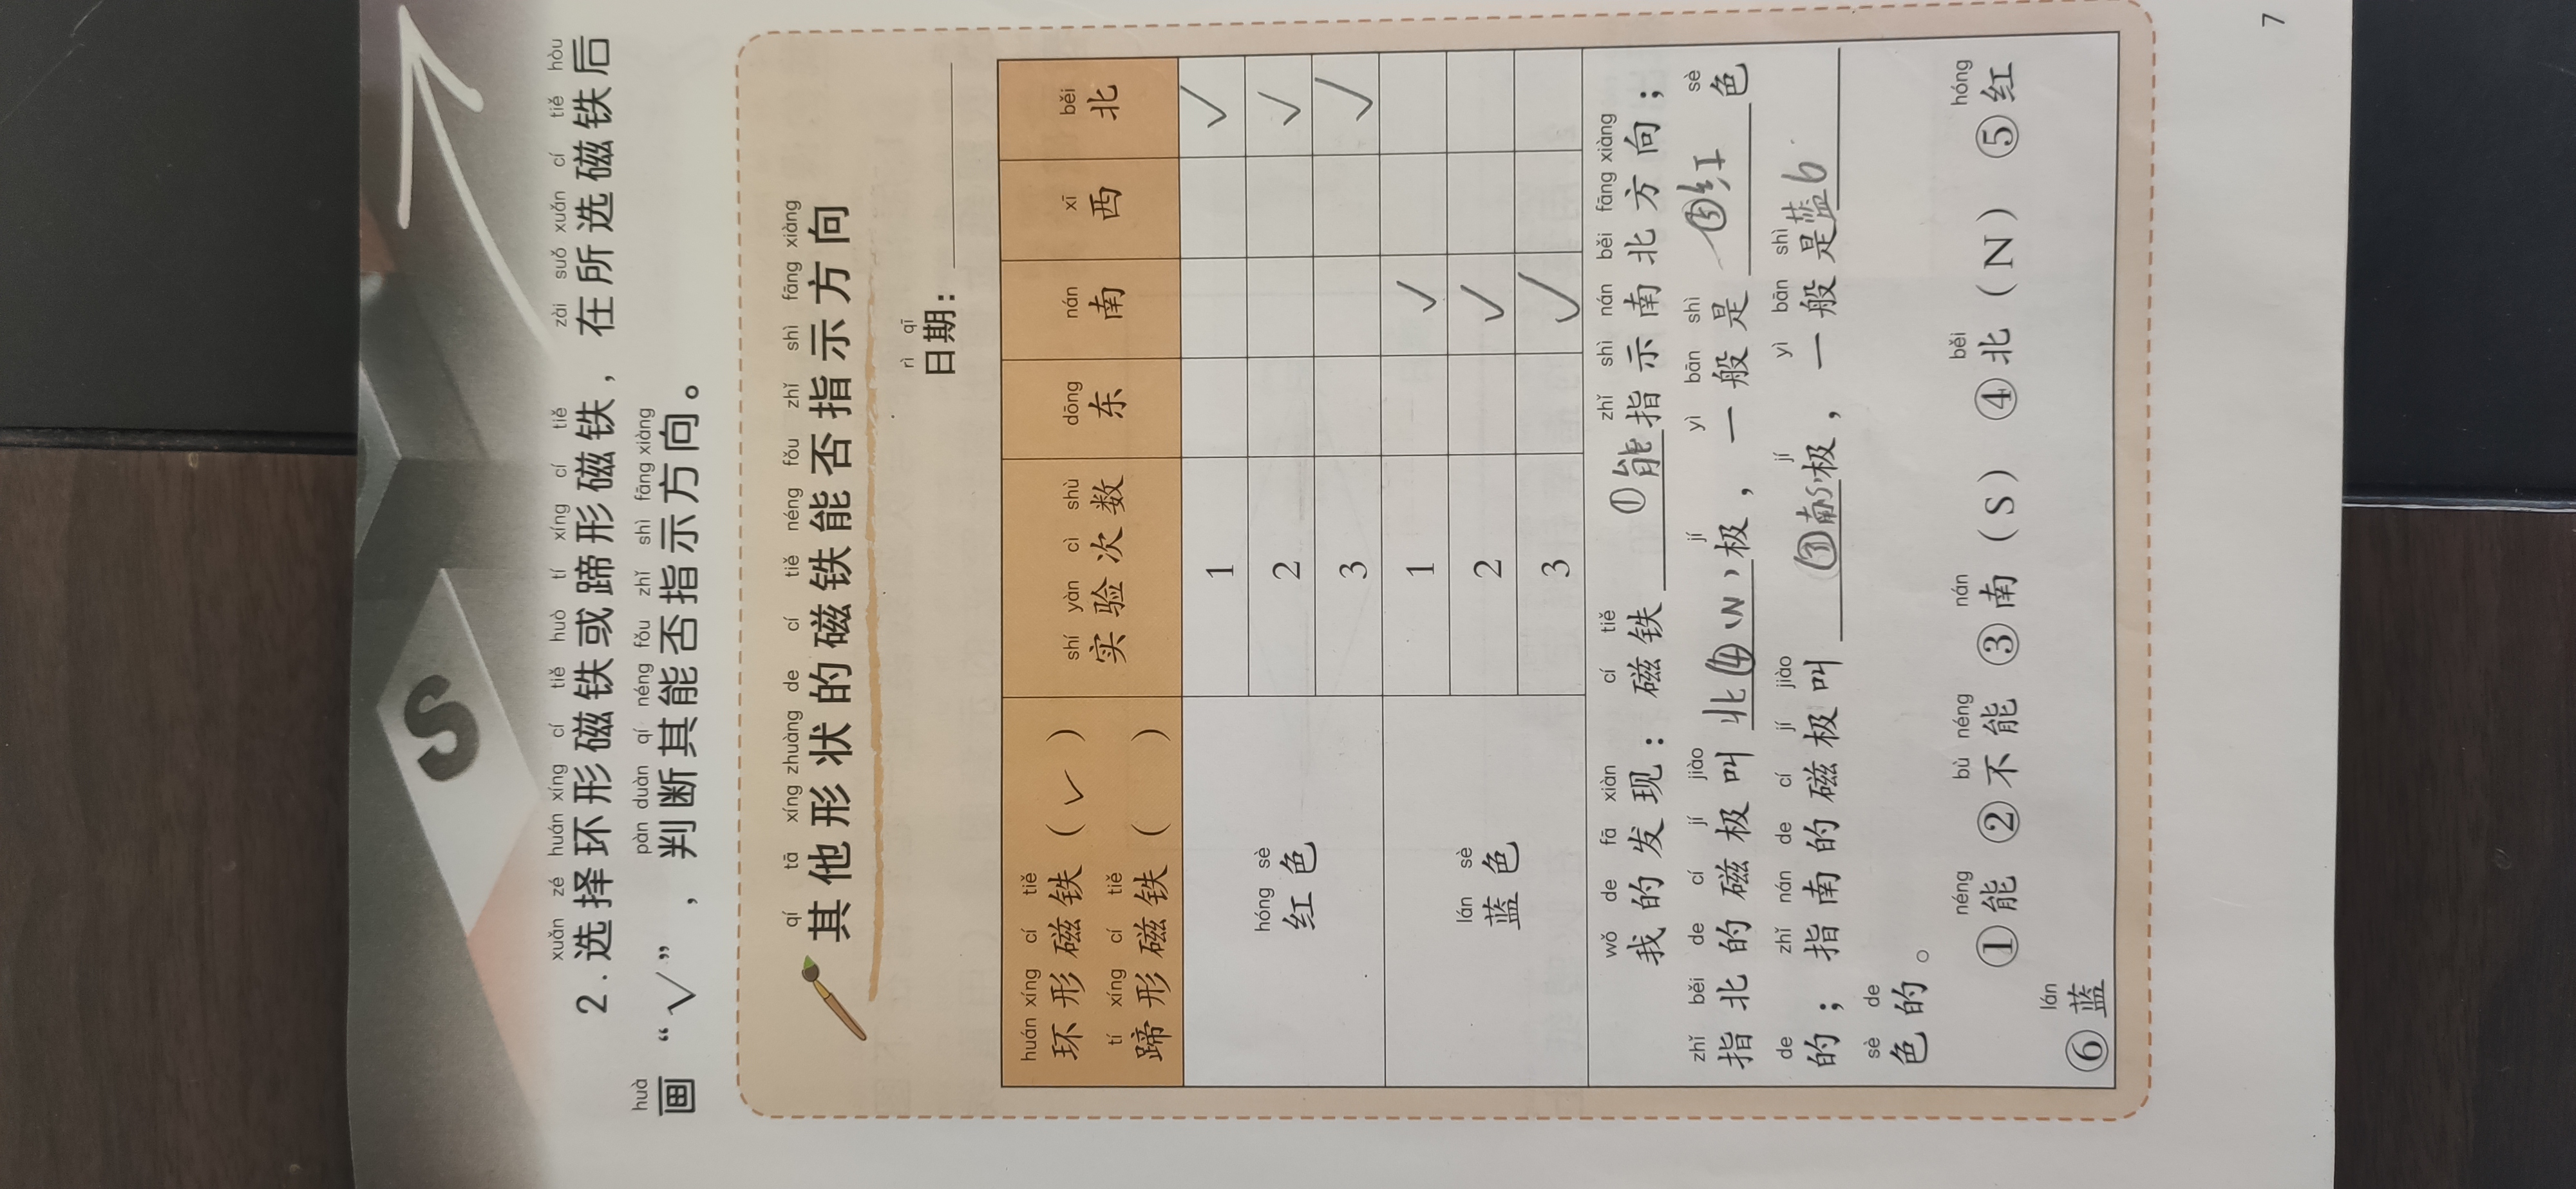 S
xuǎn zé huán xíng cí tiě huò tí xíng cí tiě zài suǒ xuǎn cí tiě hòu
2.选择环形磁铁或蹄形磁铁，在所选磁铁后
huà pàn duàn qí néng fǒu zhǐ shì fāng xiàng
画“√”，判断其能否指示方向。
qí tā xíng zhuàng de cí tiě néng fǒu zhǐ shì fāng xiàng
其他形状的磁铁能否指示方向
rì qī
日期：
huán xíng cí tiě
环形磁铁（✓）
tí xíng cí tiě
蹄形磁铁（ ）
shí yàn cì shù
实验次数
dōng
东
nán
南
xī
西
běi
北
hóng sè
红色
1 ✓
2 ✓
3 ✓
lán sè
蓝色
1 ✓
2 ✓
3 ✓
wǒ de fā xiàn cí tiě zhǐ shì nán běi fāng xiàng
我的发现：磁铁①能指示南北方向；
zhǐ běi de cí jí jiào jí yì bān shì sè
指北的磁极叫北④(N)极，一般是⑤红色
de zhǐ nán de cí jí jiào jí yì bān shì
的；指南的磁极叫③南(S)极，一般是蓝6
sè de
色的。
néng bù néng nán běi hóng
①能 ②不能 ③南（S） ④北（N） ⑤红
lán
⑥蓝
7